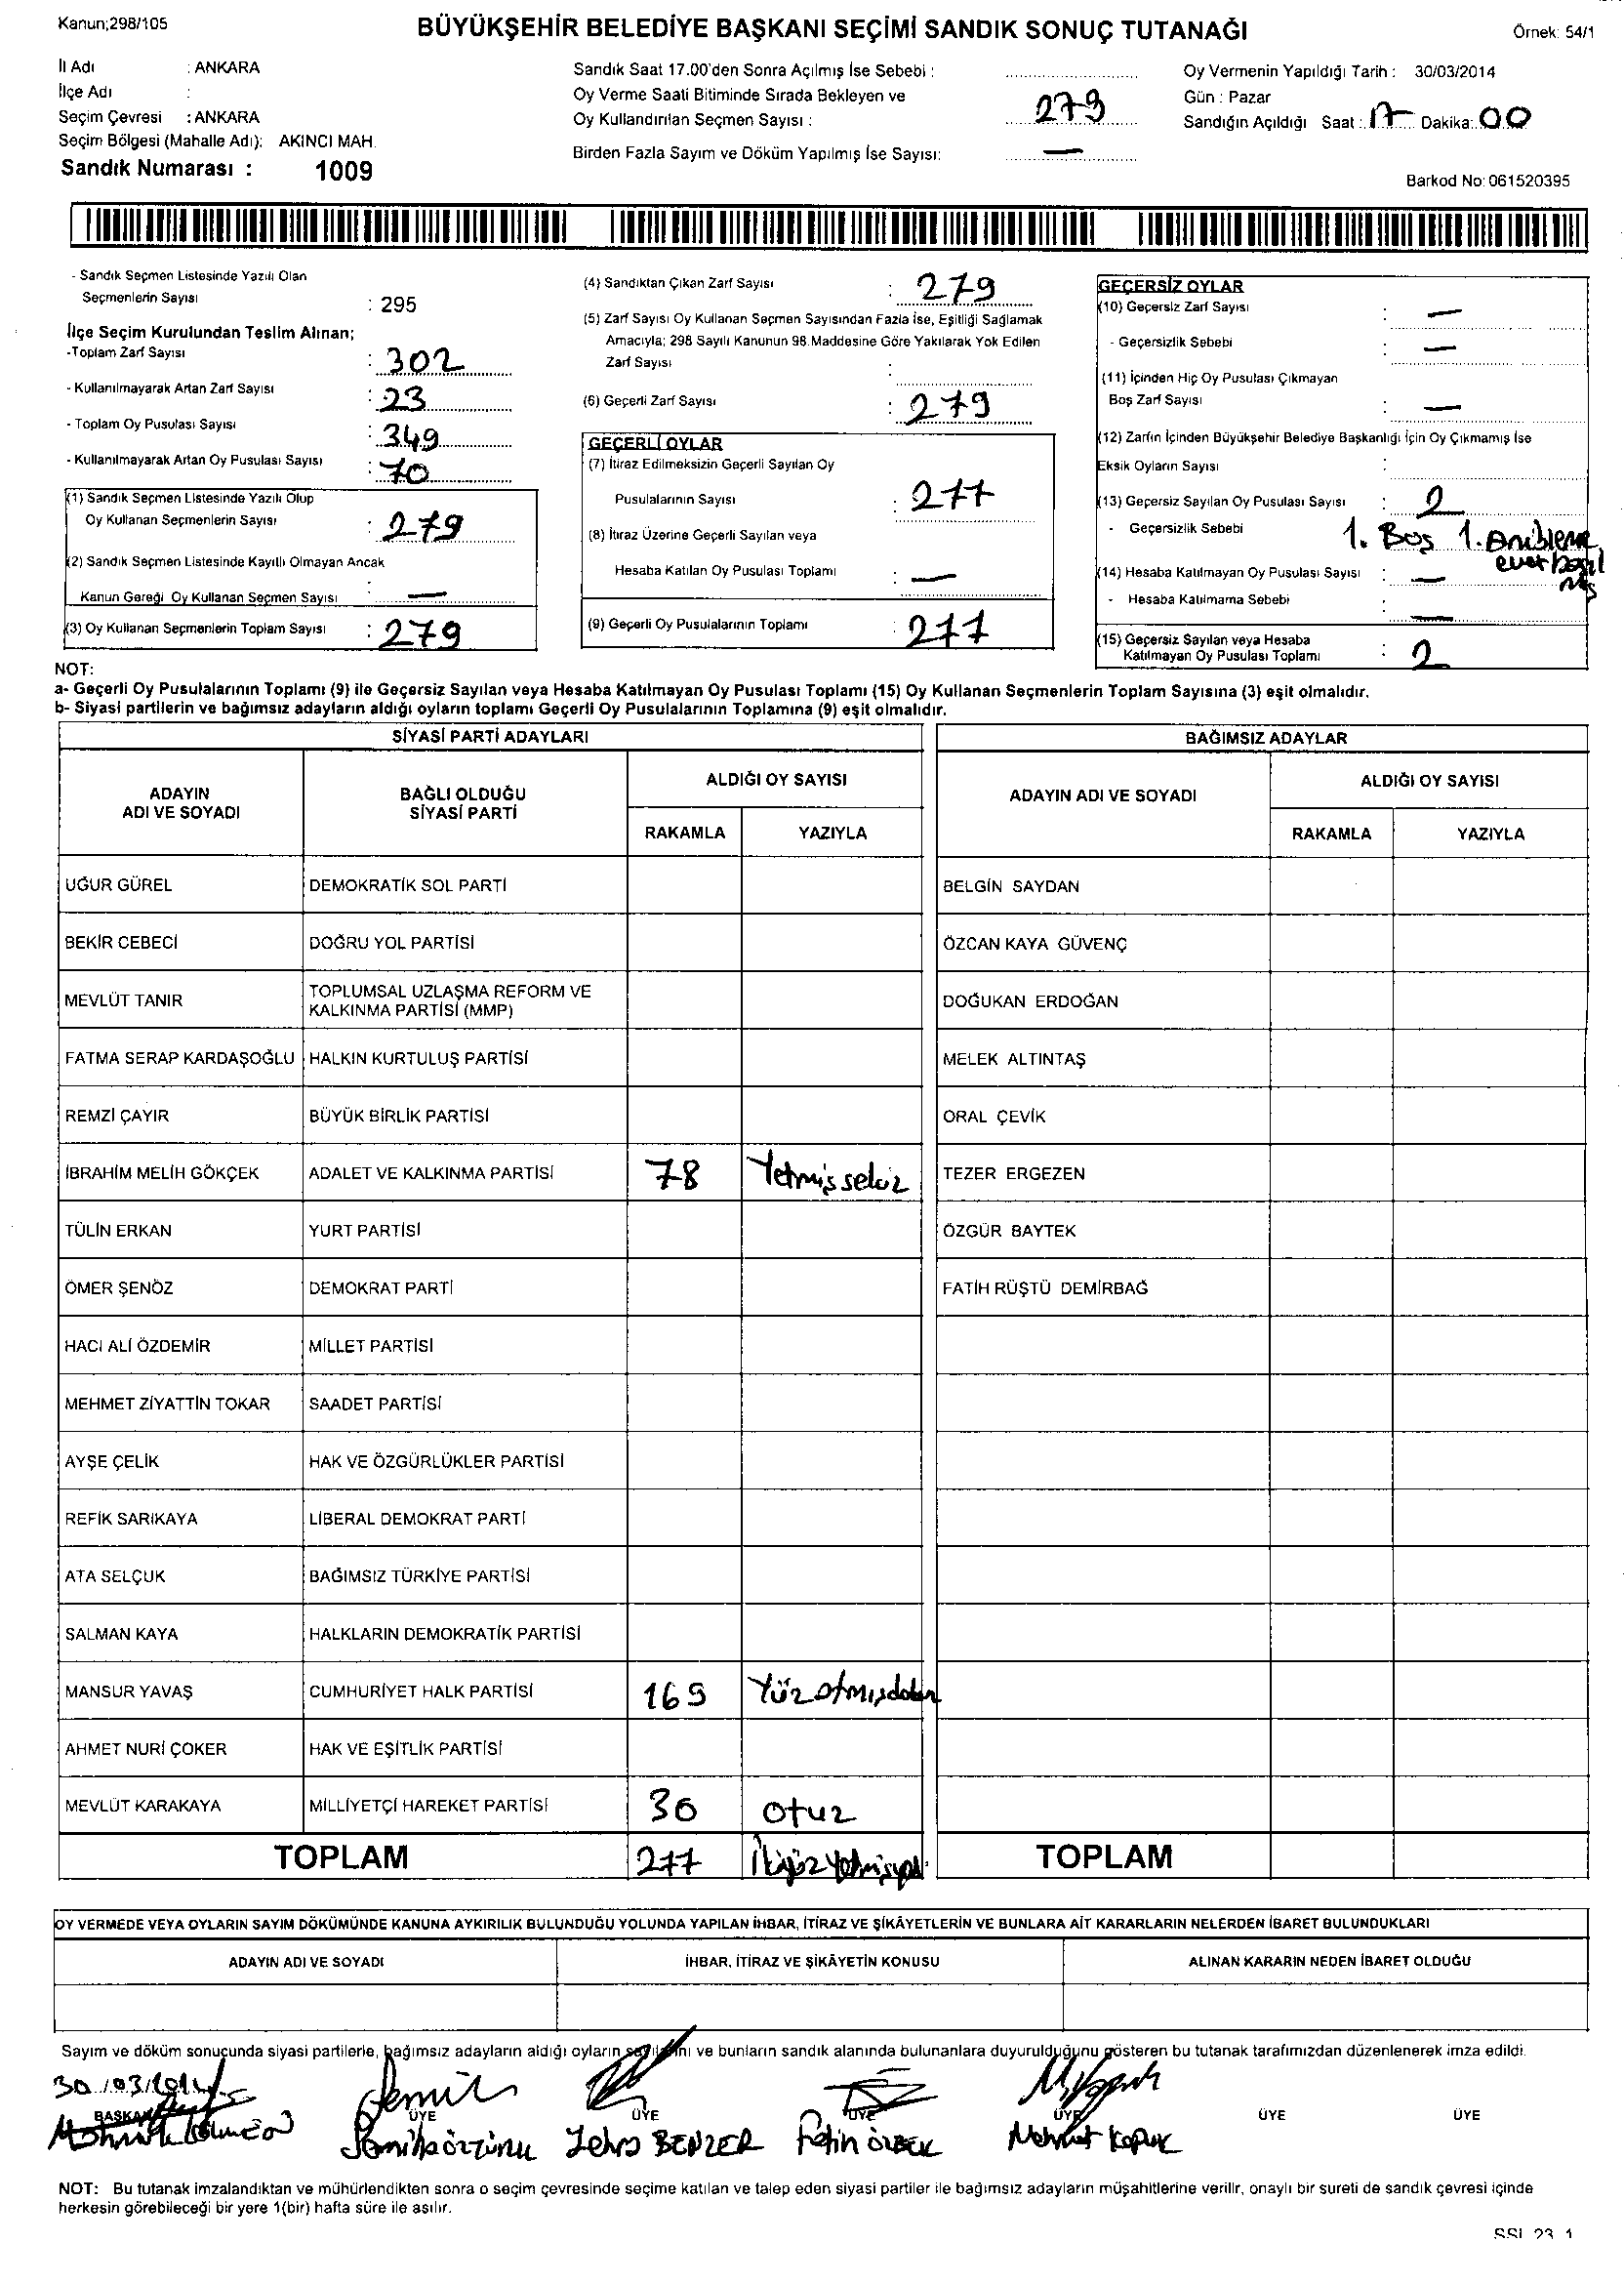 Kanun;298/105
BÜYÜKŞEHİR BELEDİYE BAŞKANI SEÇİMİ SANDIK SONUÇ TUTANAĞI
Örnek: 54/1
İl Adı : ANKARA
İlçe Adı :
Seçim Çevresi : ANKARA
Seçim Bölgesi (Mahalle Adı): AKINCI MAH.
Sandık Numarası : 1009
Sandık Saat 17.00'den Sonra Açılmış İse Sebebi :
Oy Verme Saati Bitiminde Sırada Bekleyen ve
Oy Kullandırılan Seçmen Sayısı : 279
Birden Fazla Sayım ve Döküm Yapılmış İse Sayısı: —
Oy Vermenin Yapıldığı Tarih : 30/03/2014
Gün : Pazar
Sandığın Açıldığı Saat : 17 Dakika: 00
Barkod No: 061520395
- Sandık Seçmen Listesinde Yazılı Olan
Seçmenlerin Sayısı : 295
İlçe Seçim Kurulundan Teslim Alınan;
-Toplam Zarf Sayısı : 302
- Kullanılmayarak Artan Zarf Sayısı : 23
- Toplam Oy Pusulası Sayısı : 349
- Kullanılmayarak Artan Oy Pusulası Sayısı : 70
(1) Sandık Seçmen Listesinde Yazılı Olup
Oy Kullanan Seçmenlerin Sayısı : 279
(2) Sandık Seçmen Listesinde Kayıtlı Olmayan Ancak
Kanun Gereği Oy Kullanan Seçmen Sayısı : —
(3) Oy Kullanan Seçmenlerin Toplam Sayısı : 279
(4) Sandıktan Çıkan Zarf Sayısı : 279
(5) Zarf Sayısı Oy Kullanan Seçmen Sayısından Fazla İse, Eşitliği Sağlamak
Amacıyla; 298 Sayılı Kanunun 98.Maddesine Göre Yakılarak Yok Edilen
Zarf Sayısı :
(6) Geçerli Zarf Sayısı : 279
GEÇERLİ OYLAR
(7) İtiraz Edilmeksizin Geçerli Sayılan Oy
Pusulalarının Sayısı : 277
(8) İtiraz Üzerine Geçerli Sayılan veya
Hesaba Katılan Oy Pusulası Toplamı : —
(9) Geçerli Oy Pusulalarının Toplamı : 277
GEÇERSİZ OYLAR
(10) Geçersiz Zarf Sayısı : —
- Geçersizlik Sebebi : —
(11) İçinden Hiç Oy Pusulası Çıkmayan
Boş Zarf Sayısı : —
(12) Zarfın İçinden Büyükşehir Belediye Başkanlığı İçin Oy Çıkmamış İse
Eksik Oyların Sayısı :
(13) Geçersiz Sayılan Oy Pusulası Sayısı : 2
- Geçersizlik Sebebi 1. Boş 1.
(14) Hesaba Katılmayan Oy Pusulası Sayısı : —
- Hesaba Katılmama Sebebi : —
(15) Geçersiz Sayılan veya Hesaba
Katılmayan Oy Pusulası Toplamı : 2
NOT:
a- Geçerli Oy Pusulalarının Toplamı (9) ile Geçersiz Sayılan veya Hesaba Katılmayan Oy Pusulası Toplamı (15) Oy Kullanan Seçmenlerin Toplam Sayısına (3) eşit olmalıdır.
b- Siyasi partilerin ve bağımsız adayların aldığı oyların toplamı Geçerli Oy Pusulalarının Toplamına (9) eşit olmalıdır.
SİYASİ PARTİ ADAYLARI
ADAYIN
ADI VE SOYADI
BAĞLI OLDUĞU
SİYASİ PARTİ
ALDIĞI OY SAYISI
RAKAMLA YAZIYLA
BAĞIMSIZ ADAYLAR
ADAYIN ADI VE SOYADI
ALDIĞI OY SAYISI
RAKAMLA YAZIYLA
UĞUR GÜREL DEMOKRATİK SOL PARTİ BELGİN SAYDAN
BEKİR CEBECİ DOĞRU YOL PARTİSİ ÖZCAN KAYA GÜVENÇ
MEVLÜT TANIR TOPLUMSAL UZLAŞMA REFORM VE
KALKINMA PARTİSİ (MMP) DOĞUKAN ERDOĞAN
FATMA SERAP KARDAŞOĞLU HALKIN KURTULUŞ PARTİSİ MELEK ALTINTAŞ
REMZİ ÇAYIR BÜYÜK BİRLİK PARTİSİ ORAL ÇEVİK
İBRAHİM MELİH GÖKÇEK ADALET VE KALKINMA PARTİSİ 78 Yetmiş sekiz TEZER ERGEZEN
TÜLİN ERKAN YURT PARTİSİ ÖZGÜR BAYTEK
ÖMER ŞENÖZ DEMOKRAT PARTİ FATİH RÜŞTÜ DEMİRBAĞ
HACI ALİ ÖZDEMİR MİLLET PARTİSİ
MEHMET ZİYATTİN TOKAR SAADET PARTİSİ
AYŞE ÇELİK HAK VE ÖZGÜRLÜKLER PARTİSİ
REFİK SARIKAYA LİBERAL DEMOKRAT PARTİ
ATA SELÇUK BAĞIMSIZ TÜRKİYE PARTİSİ
SALMAN KAYA HALKLARIN DEMOKRATİK PARTİSİ
MANSUR YAVAŞ CUMHURİYET HALK PARTİSİ 169 Yüz atmışdokuz
AHMET NURİ ÇOKER HAK VE EŞİTLİK PARTİSİ
MEVLÜT KARAKAYA MİLLİYETÇİ HAREKET PARTİSİ 30 otuz
TOPLAM 277 İkiyüz yetmişyedi TOPLAM
OY VERMEDE VEYA OYLARIN SAYIM DÖKÜMÜNDE KANUNA AYKIRILIK BULUNDUĞU YOLUNDA YAPILAN İHBAR, İTİRAZ VE ŞİKÂYETLERİN VE BUNLARA AİT KARARLARIN NELERDEN İBARET BULUNDUKLARI
ADAYIN ADI VE SOYADI İHBAR, İTİRAZ VE ŞİKÂYETİN KONUSU ALINAN KARARIN NEDEN İBARET OLDUĞU
Sayım ve döküm sonucunda siyasi partilerle, bağımsız adayların aldığı oyların sayılarını ve bunların sandık alanında bulunanlara duyurulduğunu gösteren bu tutanak tarafımızdan düzenlenerek imza edildi.
30/03/2014
BAŞKAN ÜYE ÜYE ÜYE ÜYE ÜYE ÜYE
Semiha özgünü Zehra BENZER Fatin ÖZBEK Mehmet
NOT: Bu tutanak imzalandıktan ve mühürlendikten sonra o seçim çevresinde seçime katılan ve talep eden siyasi partiler ile bağımsız adayların müşahitlerine verilir, onaylı bir sureti de sandık çevresi içinde
herkesin görebileceği bir yere 1(bir) hafta süre ile asılır.